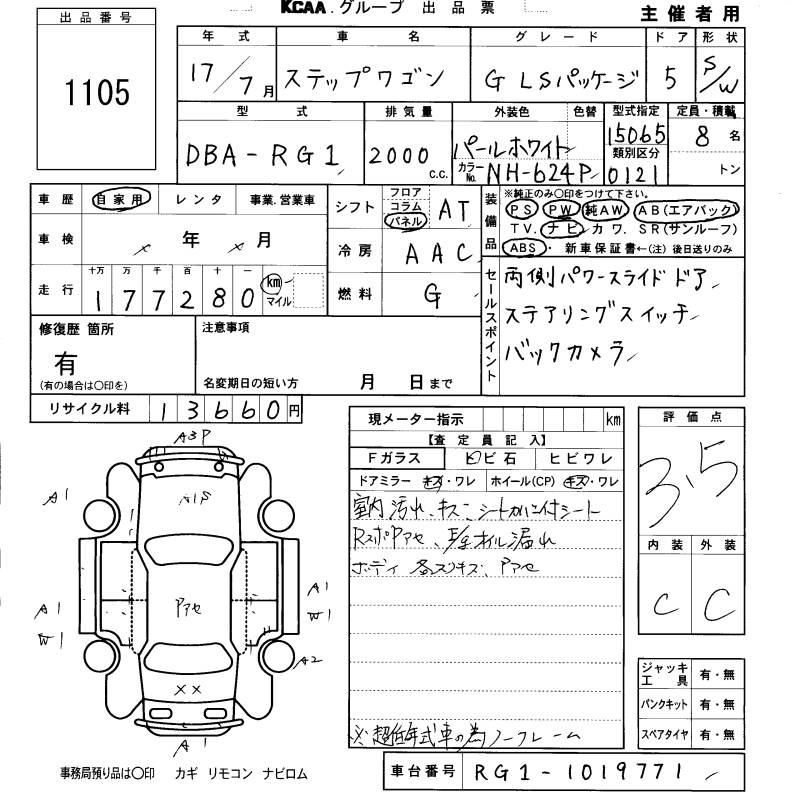 KCAA.グループ 出品票
主催者用
出品番号
1105
年式 車名 グレード ドア 形状
17/7月 ステップワゴン G LSパッケージ 5 S/W
型式 排気量 外装色 色替 型式指定 定員・積載
DBA-RG1 2000 c.c. パールホワイト 15065 8名
カラーNo. NH-624P 類別区分 0121 トン
車歴 自家用 レンタ 事業.営業車
シフト フロア コラム パネル AT
装備品 ※純正のみ○印をつけて下さい。
PS PW 純AW AB(エアバック)
TV. ナビ カワ. SR(サンルーフ)
ABS・ 新車保証書←(注) 後日送りのみ
車検 年 月
冷房 AAC
走行 十万 万 千 百 十 一
177280 km マイル
燃料 G
セールスポイント
両側パワースライドドア
ステアリングスイッチ
バックカメラ
修復歴 箇所
有
(有の場合は○印を)
注意事項
名変期日の短い方 月 日まで
リサイクル料 13660円
現メーター指示 km
【査定員記入】
Fガラス ヒビ石 ヒビワレ
ドアミラー キズ・ワレ ホイール(CP) キズ・ワレ
室内汚れ、キズ、シート
オイル漏れ
ボディ
※超低年式車の為ノーフレーム
評価点
3.5
内装 外装
C C
A3P
A1S
A1
A1
W1
アセ
A1
W1
A2
XX
A1
ジャッキ工具 有・無
パンクキット 有・無
スペアタイヤ 有・無
事務局預り品は○印 カギ リモコン ナビロム
車台番号 RG1-1019771